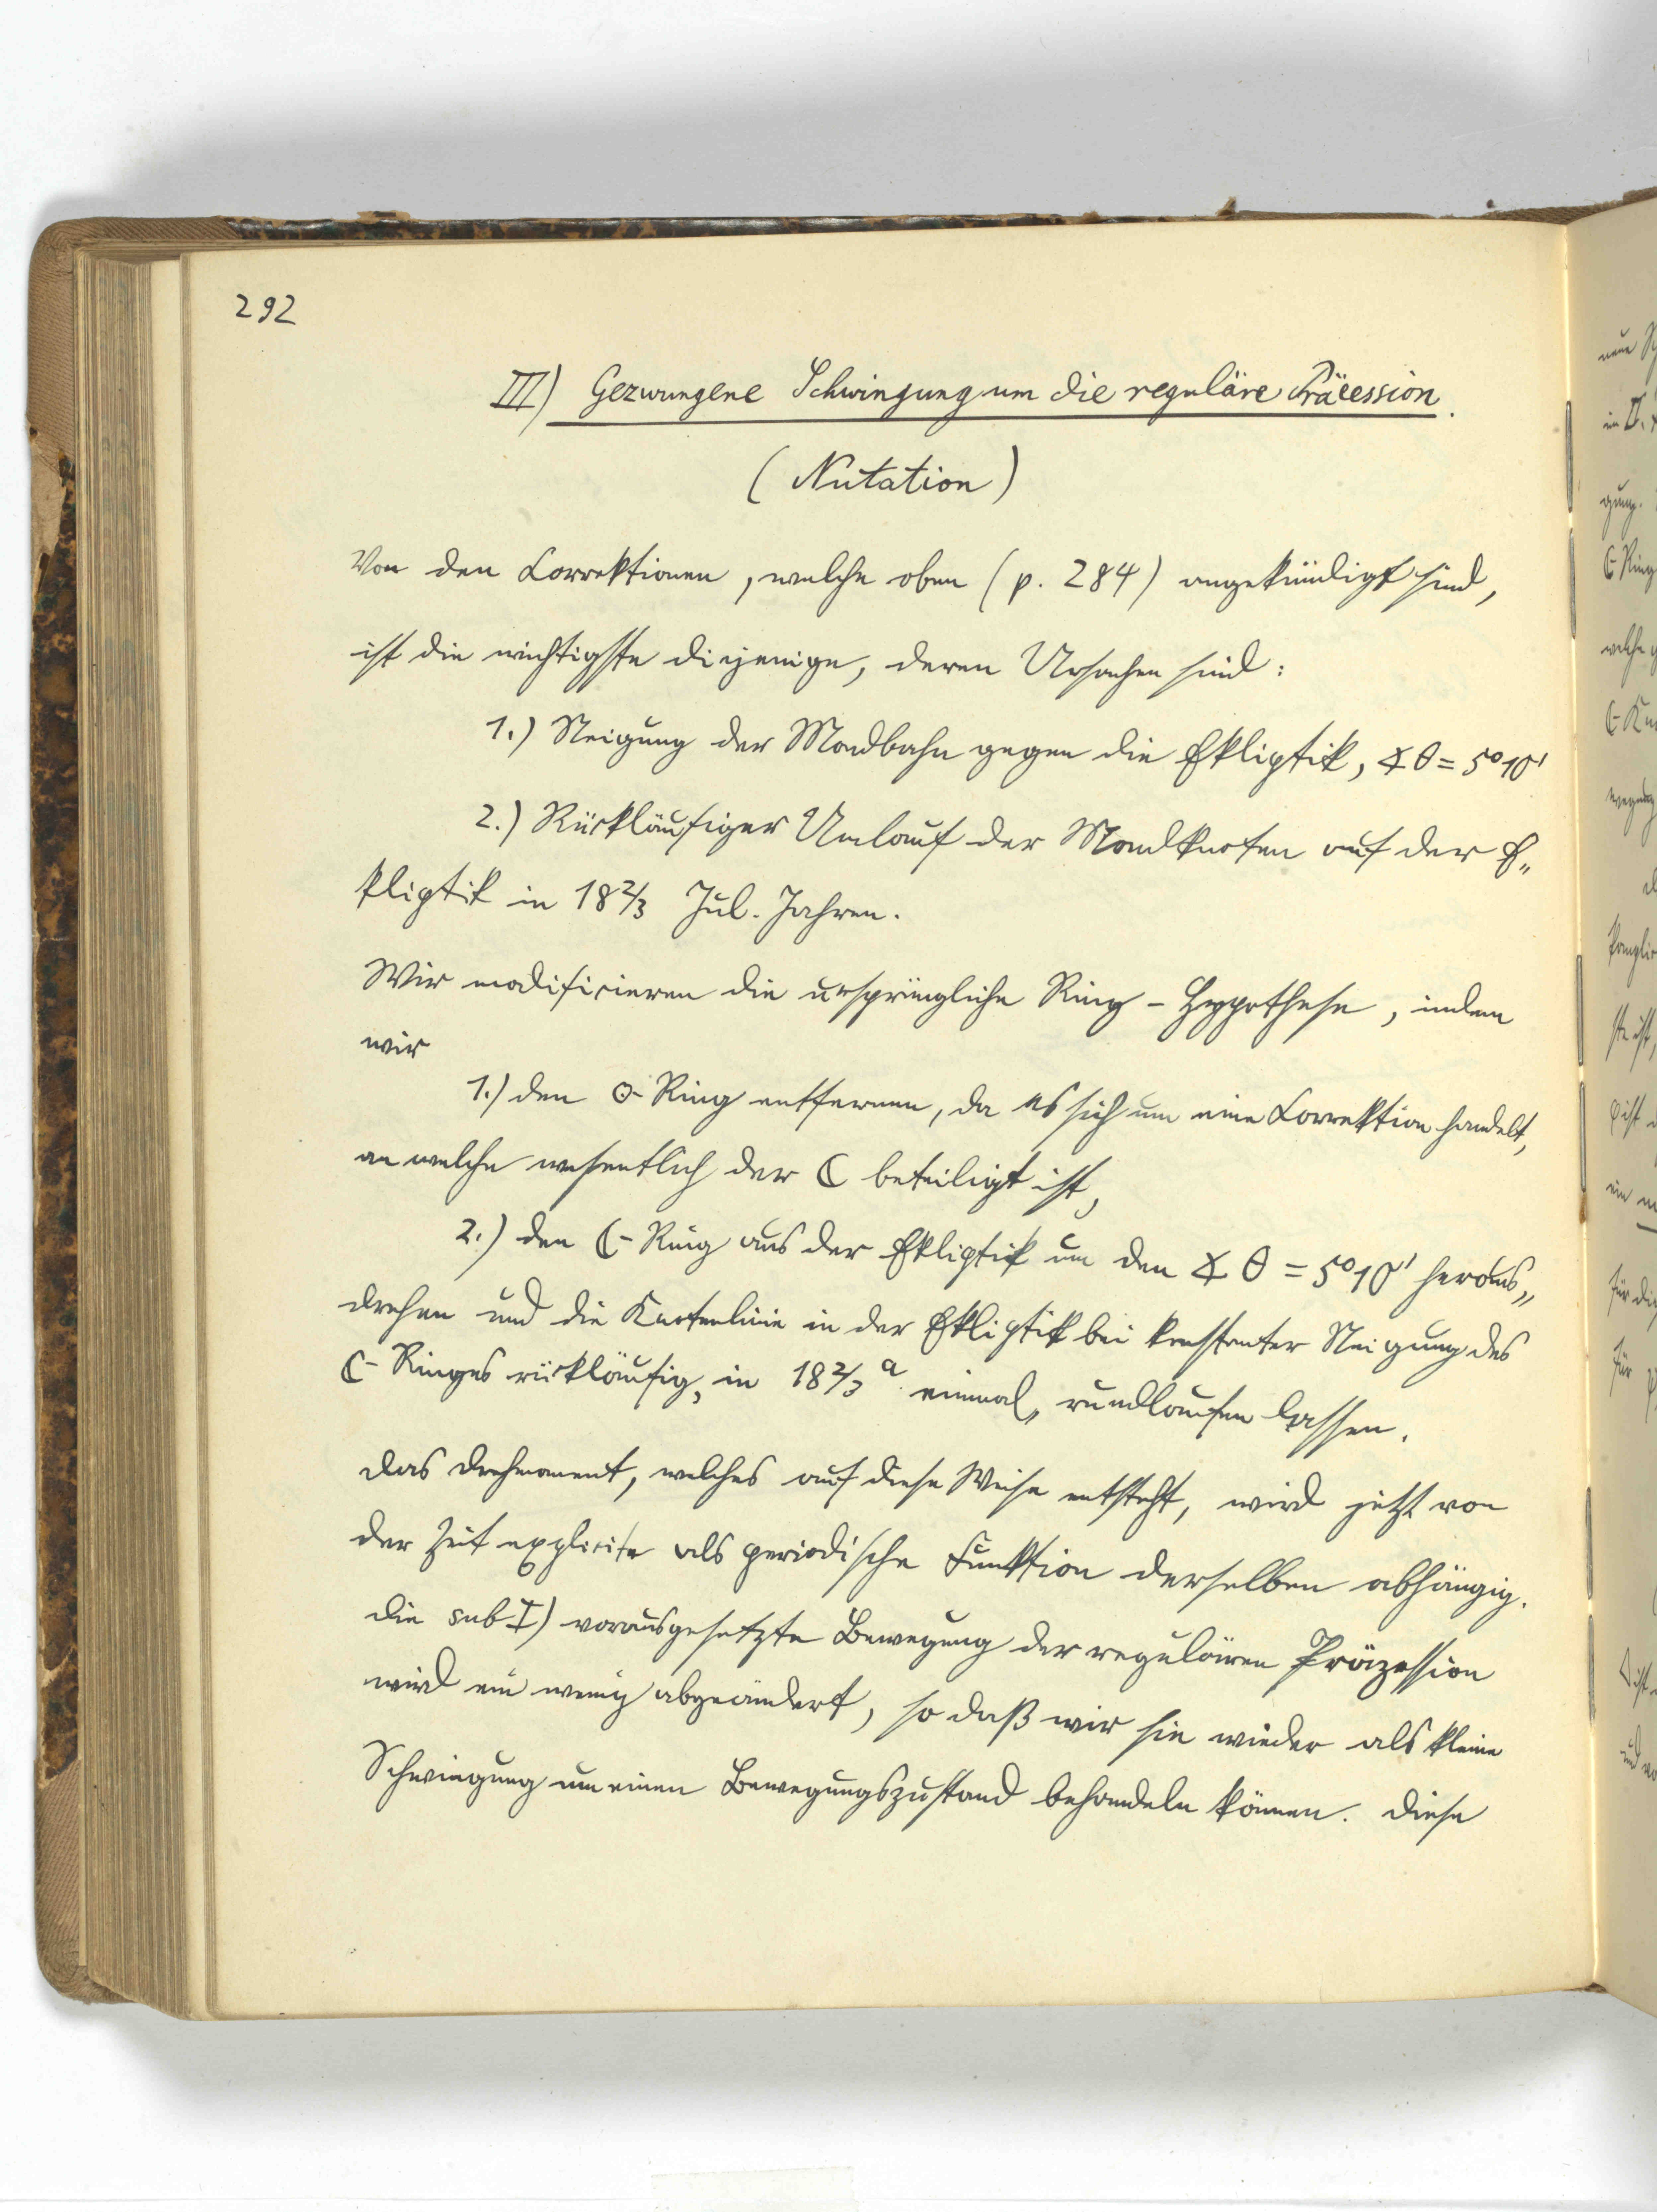 292
III) Gezwungene Schwingung um die reguläre Präcession.
(Nutation)
Von den Correktionen, welche oben (p. 284) angekündigt sind,
ist die wichtigste diejenige, deren Ursachen sind:
1.) Neigung der Mondbahn gegen die Ekliptik, ∡ θ = 5°10'
2.) Rückläufiger Umlauf der Mondknoten auf der E„
kliptik in 18 2/3 Jul. Jahren.
Wir modificieren die ursprüngliche Ring-Hypothese, indem
wir
1.) den ☉-Ring entfernen, da es sich um eine Correktion handelt,
an welche wesentlich der ☾ beteiligt ist,
2.) den ☾-Ring aus der Ekliptik um den ∡ θ = 5°10' heraus„
drehen und die Knotenlinie in der Ekliptik bei konstanter Neigung des
☾-Ringes rückläufig, in 18 2/3 a einmal, rundlaufen lassen.
Das Drehmoment, welches auf diese Weise entsteht, wird jetzt von
der Zeit explicite als periodische Funktion derselben abhängig.
Die sub I) vorausgesetzte Bewegung der regulären Präzession
wird ein wenig abgeändert, so daß wir sie wieder als kleine
Schwingung um einen Bewegungszustand behandeln können. Diese